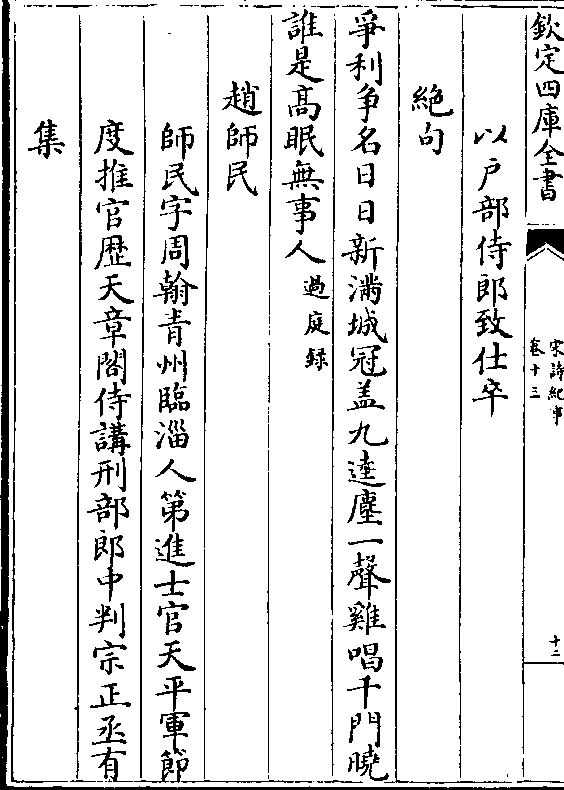 欽定四庫全書
宋詩紀事
卷十三
十二
以戶部侍郎致仕卒
絕句
爭利争名日日新滿城冠盖九逵塵一聲雞唱千門曉
誰是髙眠無事人過庭録
趙師民
師民字周翰青州臨淄人第進士官天平軍節
度推官歴天章閣侍講刑部郎中判宗正丞有
集